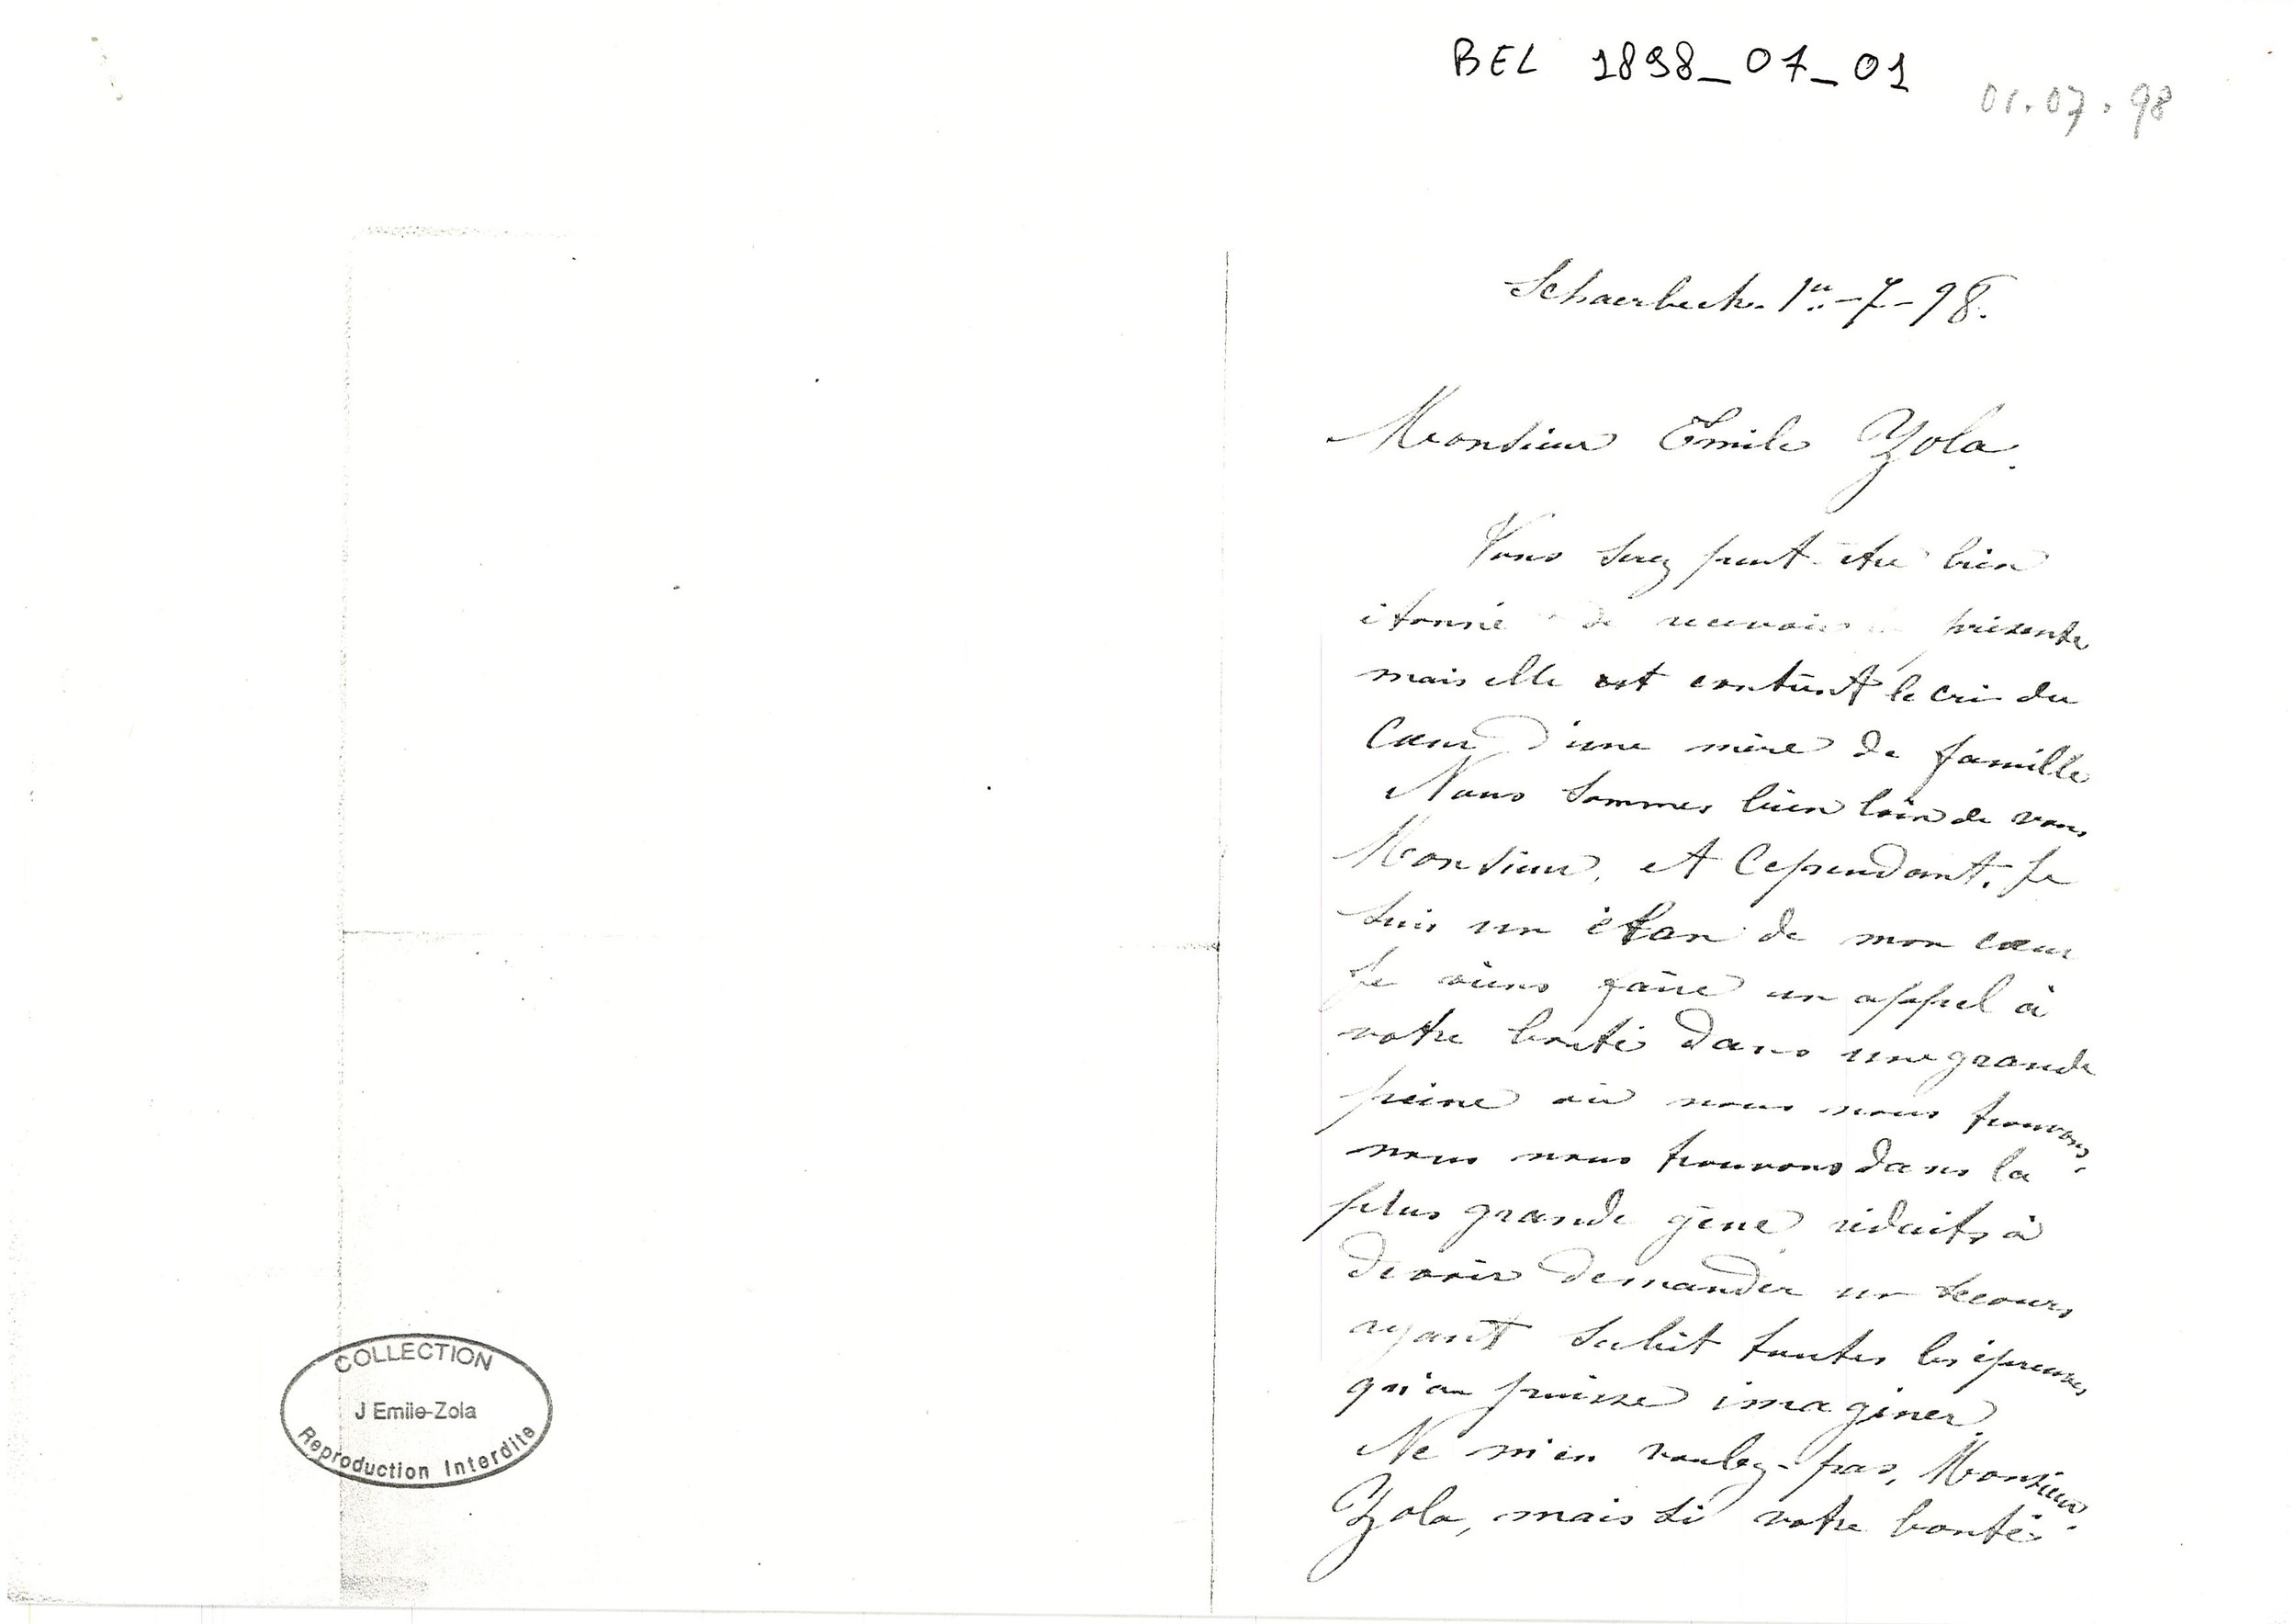 BEL 1898_07_01
01.07.98
Schaerbeek. 1er-7-98.
Monsieur Emile Zola.
Vous serez peut-être bien
étonné de recevoir présente
mais elle est contient le cri du
Cœur d'une mère de famille
Nous sommes bien loin de vous
Monsieur, et Cependant. Je
suis un élan de mon cœur
Je viens faire un appel à
votre bonté dans une grande
peine où nous nous trouvons,
nous nous trouvons dans la
plus grande gène réduits à
devoir demander un secours
ayant subit toutes les épreuves
qu'on puisse imaginer
Ne m'en voulez-pas, Monsieur
Zola, mais si votre bonté
COLLECTION
J Emile-Zola
Reproduction Interdite